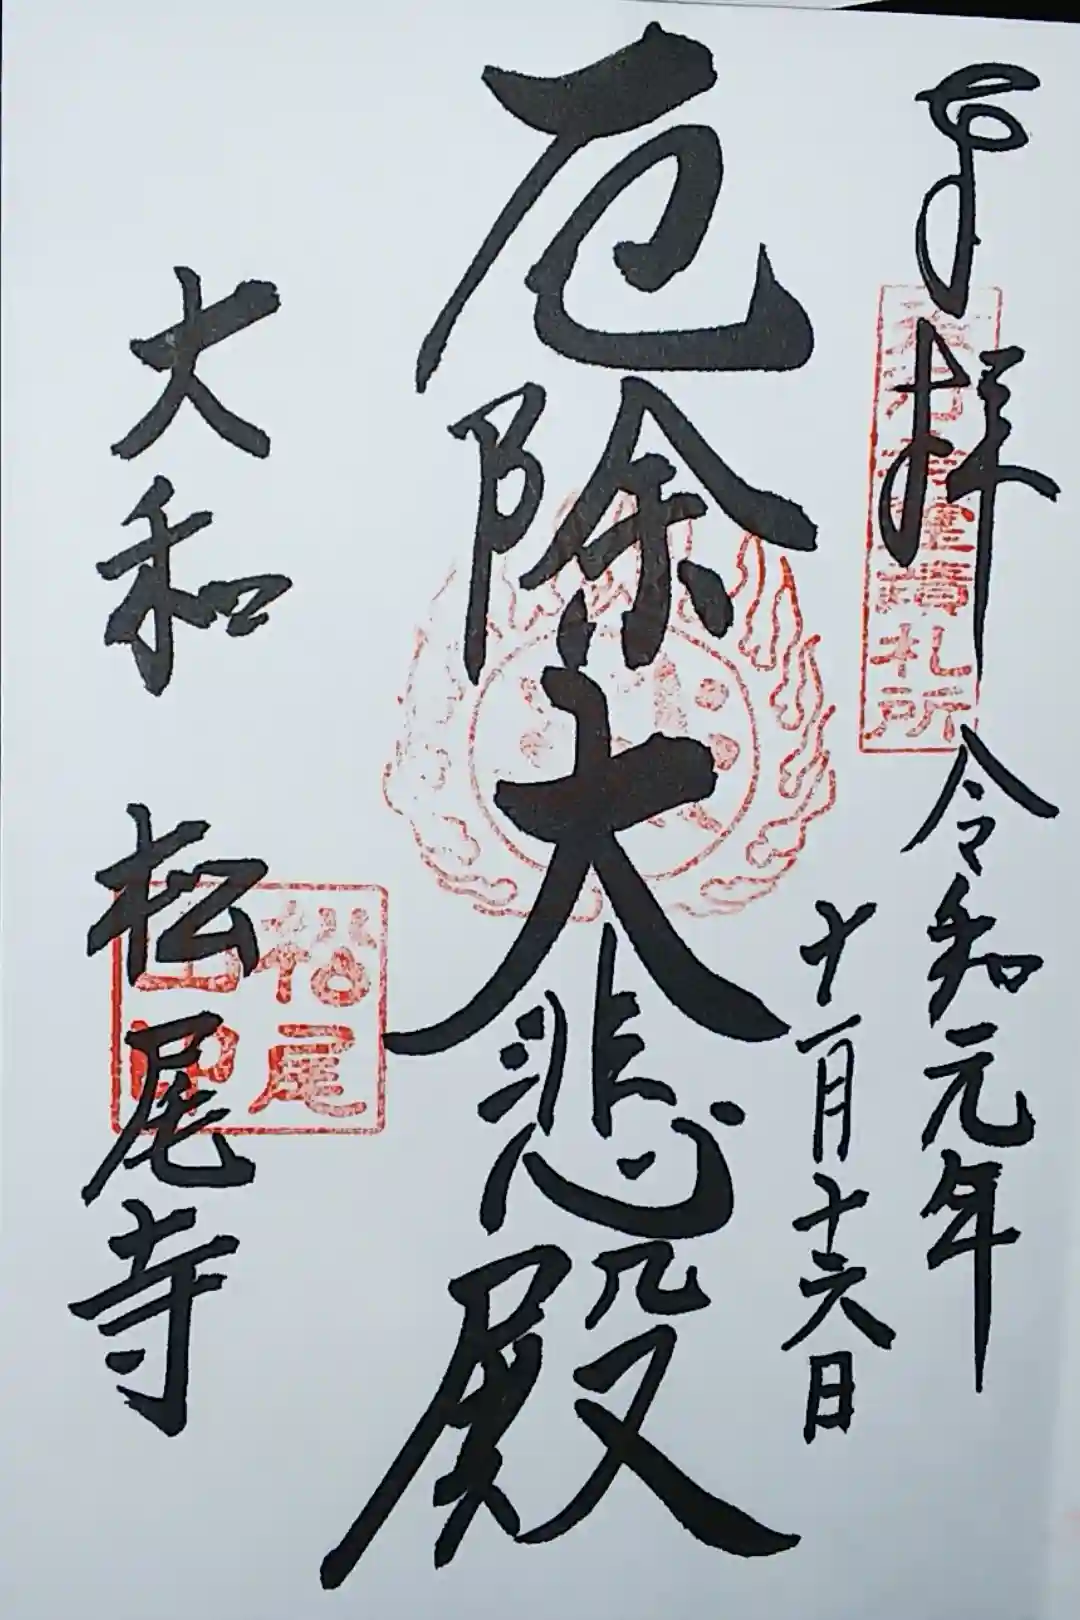 奉拝
令和元年
十一月十六日
厄除大悲殿
大和 松尾寺
霊場札所
松尾
山印